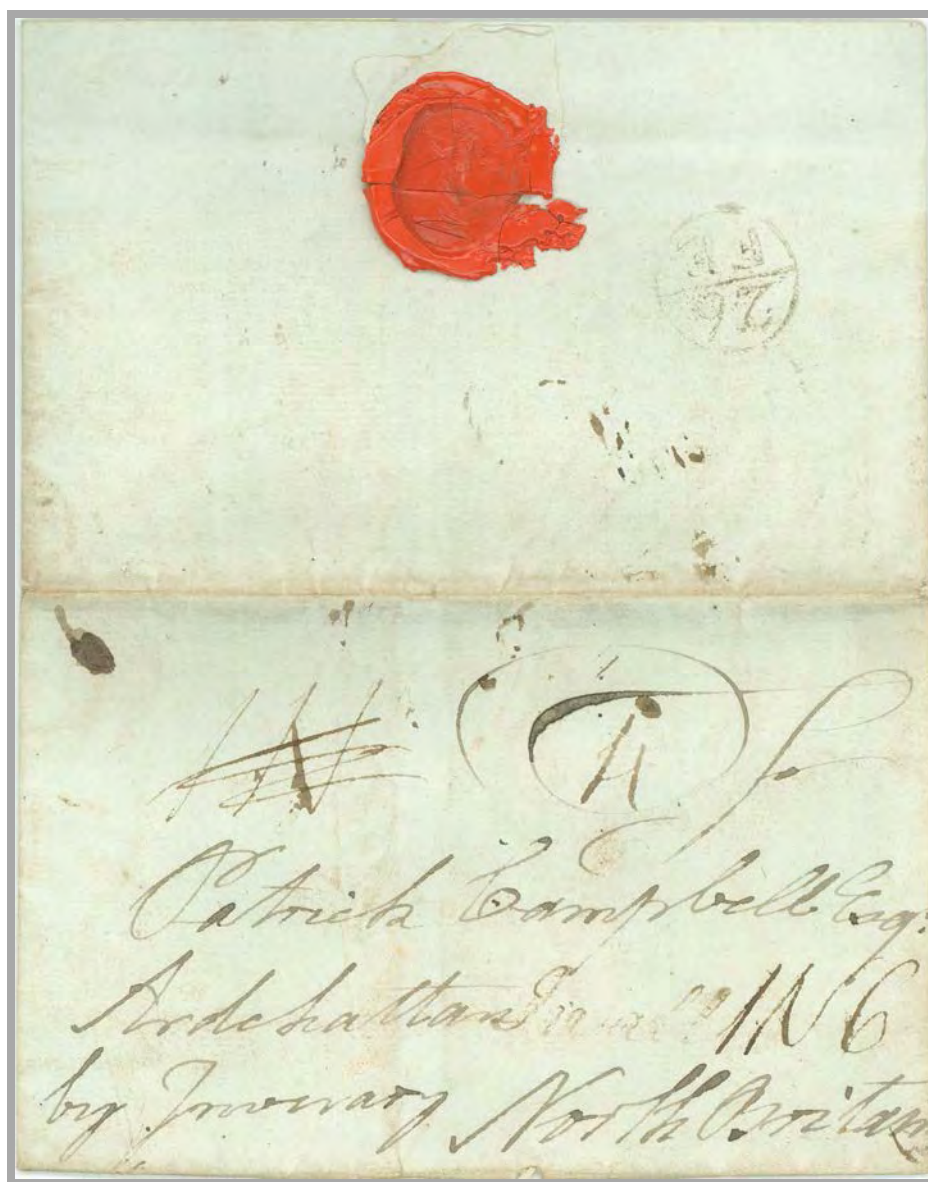 FE
26
To
Patrick Campbell Esq:
Ardchattan 1N6
by Inverary North Britain